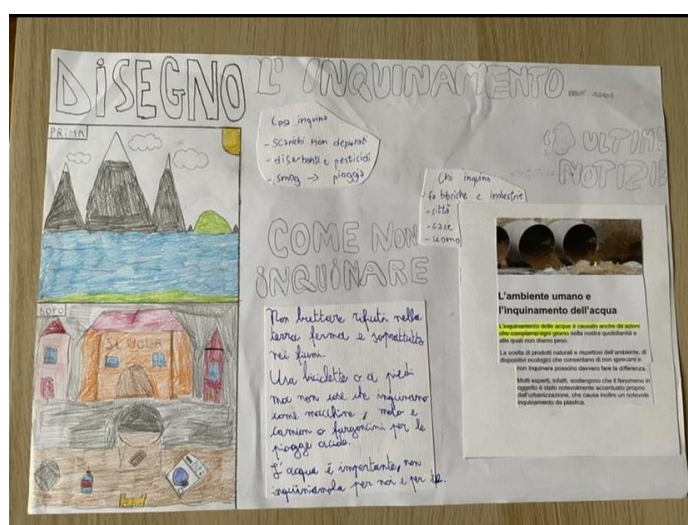 DISEGNO
L'INQUINAMENTO
PRIMA
Cosa inquina
- scarichi non depurati
- diserbanti e pesticidi
- smog → pioggia
ULTIME
NOTIZIE
Chi inquina
- fabbriche e industrie
- città
- case
- uomo
COME NON
INQUINARE
SCUOLA
Non buttare rifiuti nella
terra ferma e soprattutto
nei fiumi.
Usa biciclette o a piedi
ma non cose che inquinano
come macchine, moto e
camion o furgoncini per le
piogge acide.
L'acqua è importante, non
inquiniamola per noi e per
L'ambiente umano e
l'inquinamento dell'acqua
L'inquinamento delle acque è causato anche da azioni
che compiamo ogni giorno nella nostra quotidianità e
alle quali non diamo peso.
La scelta di prodotti naturali e rispettosi dell'ambiente, di
dispositivi ecologici che consentano di non sprecare e
non inquinare possono davvero fare la differenza.
Molti esperti, infatti, sostengono che il fenomeno in
oggetto è stato notevolmente accentuato proprio
dall'urbanizzazione, che causa inoltre un notevole
inquinamento da plastica.